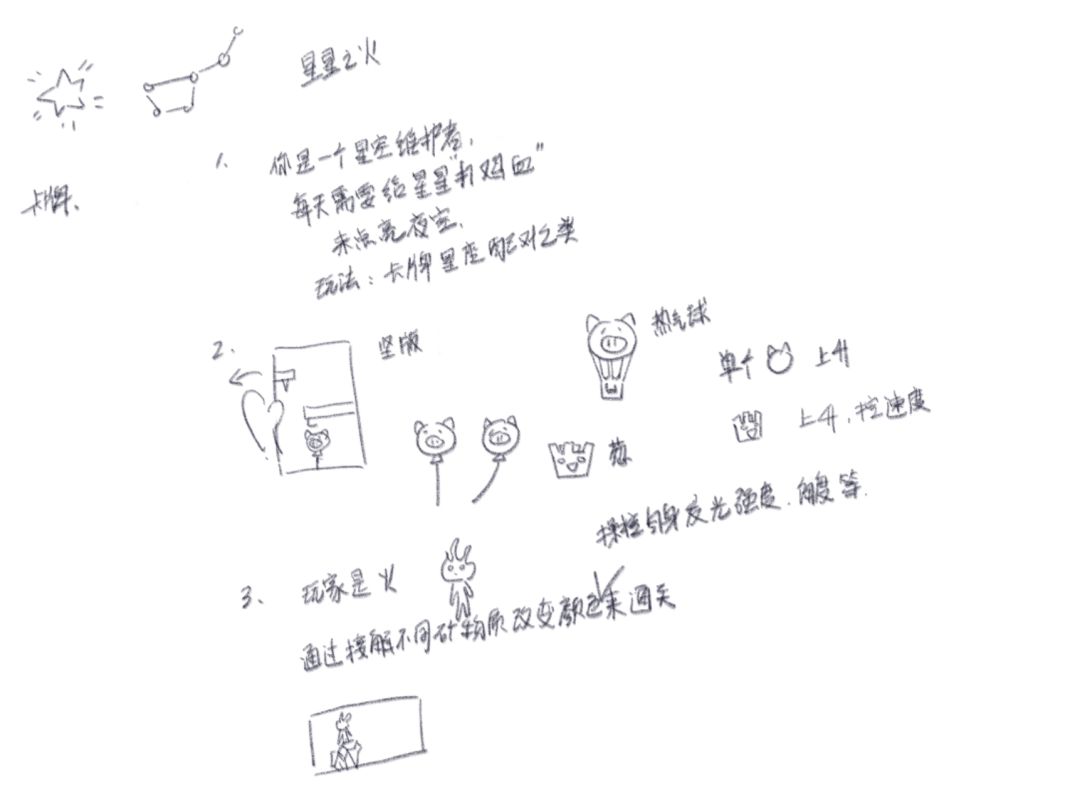 星星之火
卡牌、
1. 你是一个星空维护者,
每天需要给星星"打鸡血"
来点亮夜空、
玩法:卡牌星座配对之类
2. 竖版
热气球
单个 上升
上升,控速度
操控自身发光强度、角度等.
3、玩家是火
通过接触不同矿物质改变颜色来通关